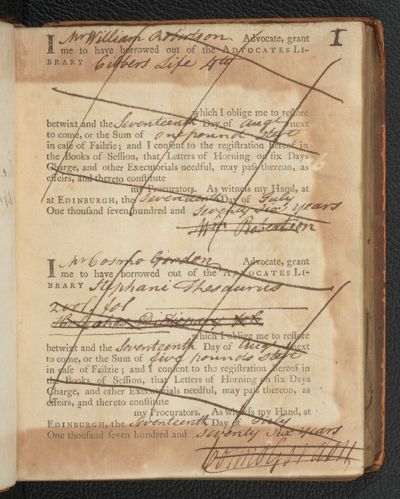 1
I Mr William Robertson Advocate, grant
me to have borrowed out of the ADVOCATES LI-
BRARY Cibbers Life 4to
which I oblige me to reſtore
betwixt and the Seventeenth Day of Augt next
to come, or the Sum of one pound ster
in caſe of Failzie; and I conſent to the regiſtration hereof in
the Books of Seſſion, that Letters of Horning on ſix Days
Charge, and other Executorials needful, may paſs thereon, as
effeirs, and thereto conſtitute
my Procurators. As witneſs my Hand, at
at EDINBURGH, the Seventeenth Day of July
One thouſand ſeven hundred and Seventy Six years
Wm Robertson
I Mr Cosmo Gordon Advocate, grant
me to have borrowed out of the ADVOCATES LI-
BRARY Stephani Thesaurus
2 vols fol
Dictionary
which I oblige me to reſtore
betwixt and the Seventeenth Day of Augt next
to come, or the Sum of five pounds ster
in caſe of Failzie; and I conſent to the regiſtration hereof in
the Books of Seſſion, that Letters of Horning on ſix Days
Charge, and other Executorials needful, may paſs thereon, as
effeirs, and thereto conſtitute
my Procurators. As witneſs my Hand, at
EDINBURGH, the Seventeenth Day of July
One thouſand ſeven hundred and Seventy Six years
Cosmo Gordon